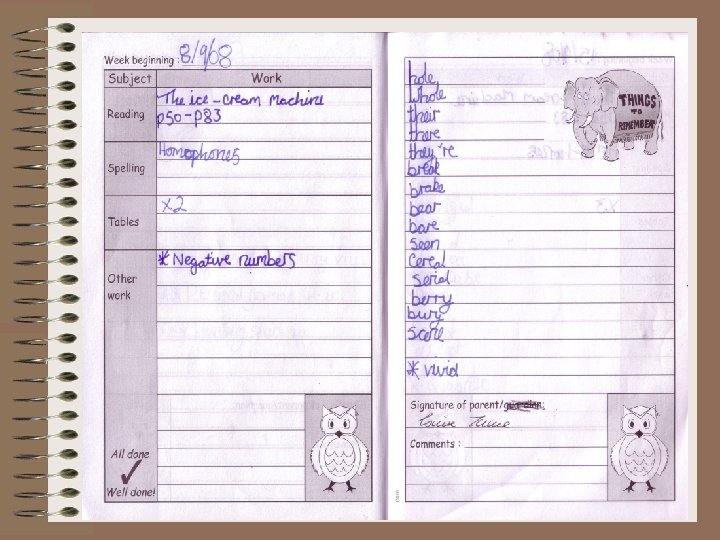 Week beginning : 8/9/08
Subject Work
Reading The ice-cream Machine
p50-p83
Spelling Homophones
Tables x2
Other work * Negative numbers
All done
Well done!
hole
whole
their
there
they're
break
brake
bear
bare
seen
cereal
serial
berry
bury
score
* vivid
THINGS
TO
REMEMBER
Signature of parent/guardian:
Comments :